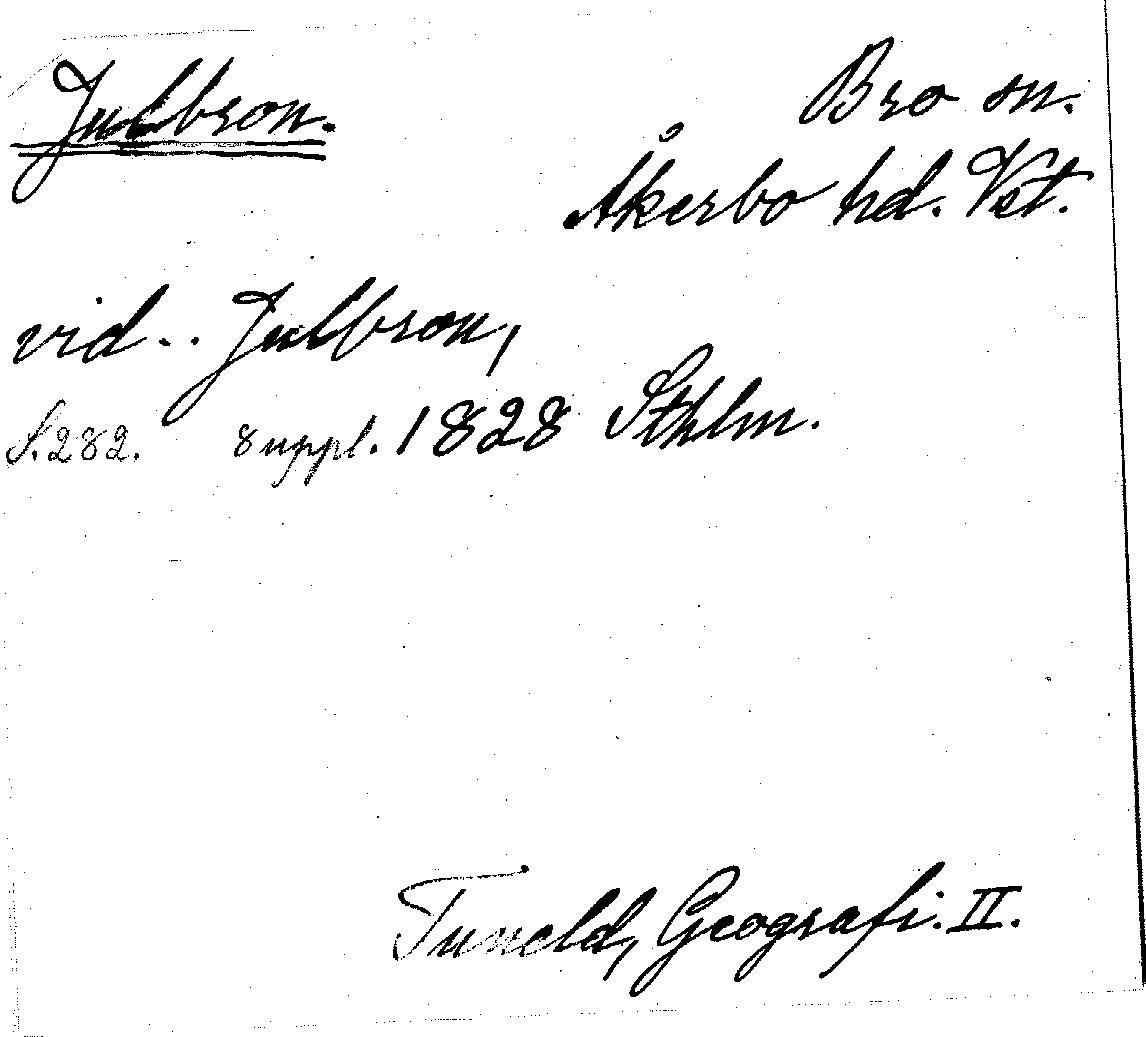 Julbron.
Bro sn.
Åkerbo hd. Vst.
vid .. Julbron,
S. 282. suppl. 1828 Sthlm.
Tuneld, Geografi. II.